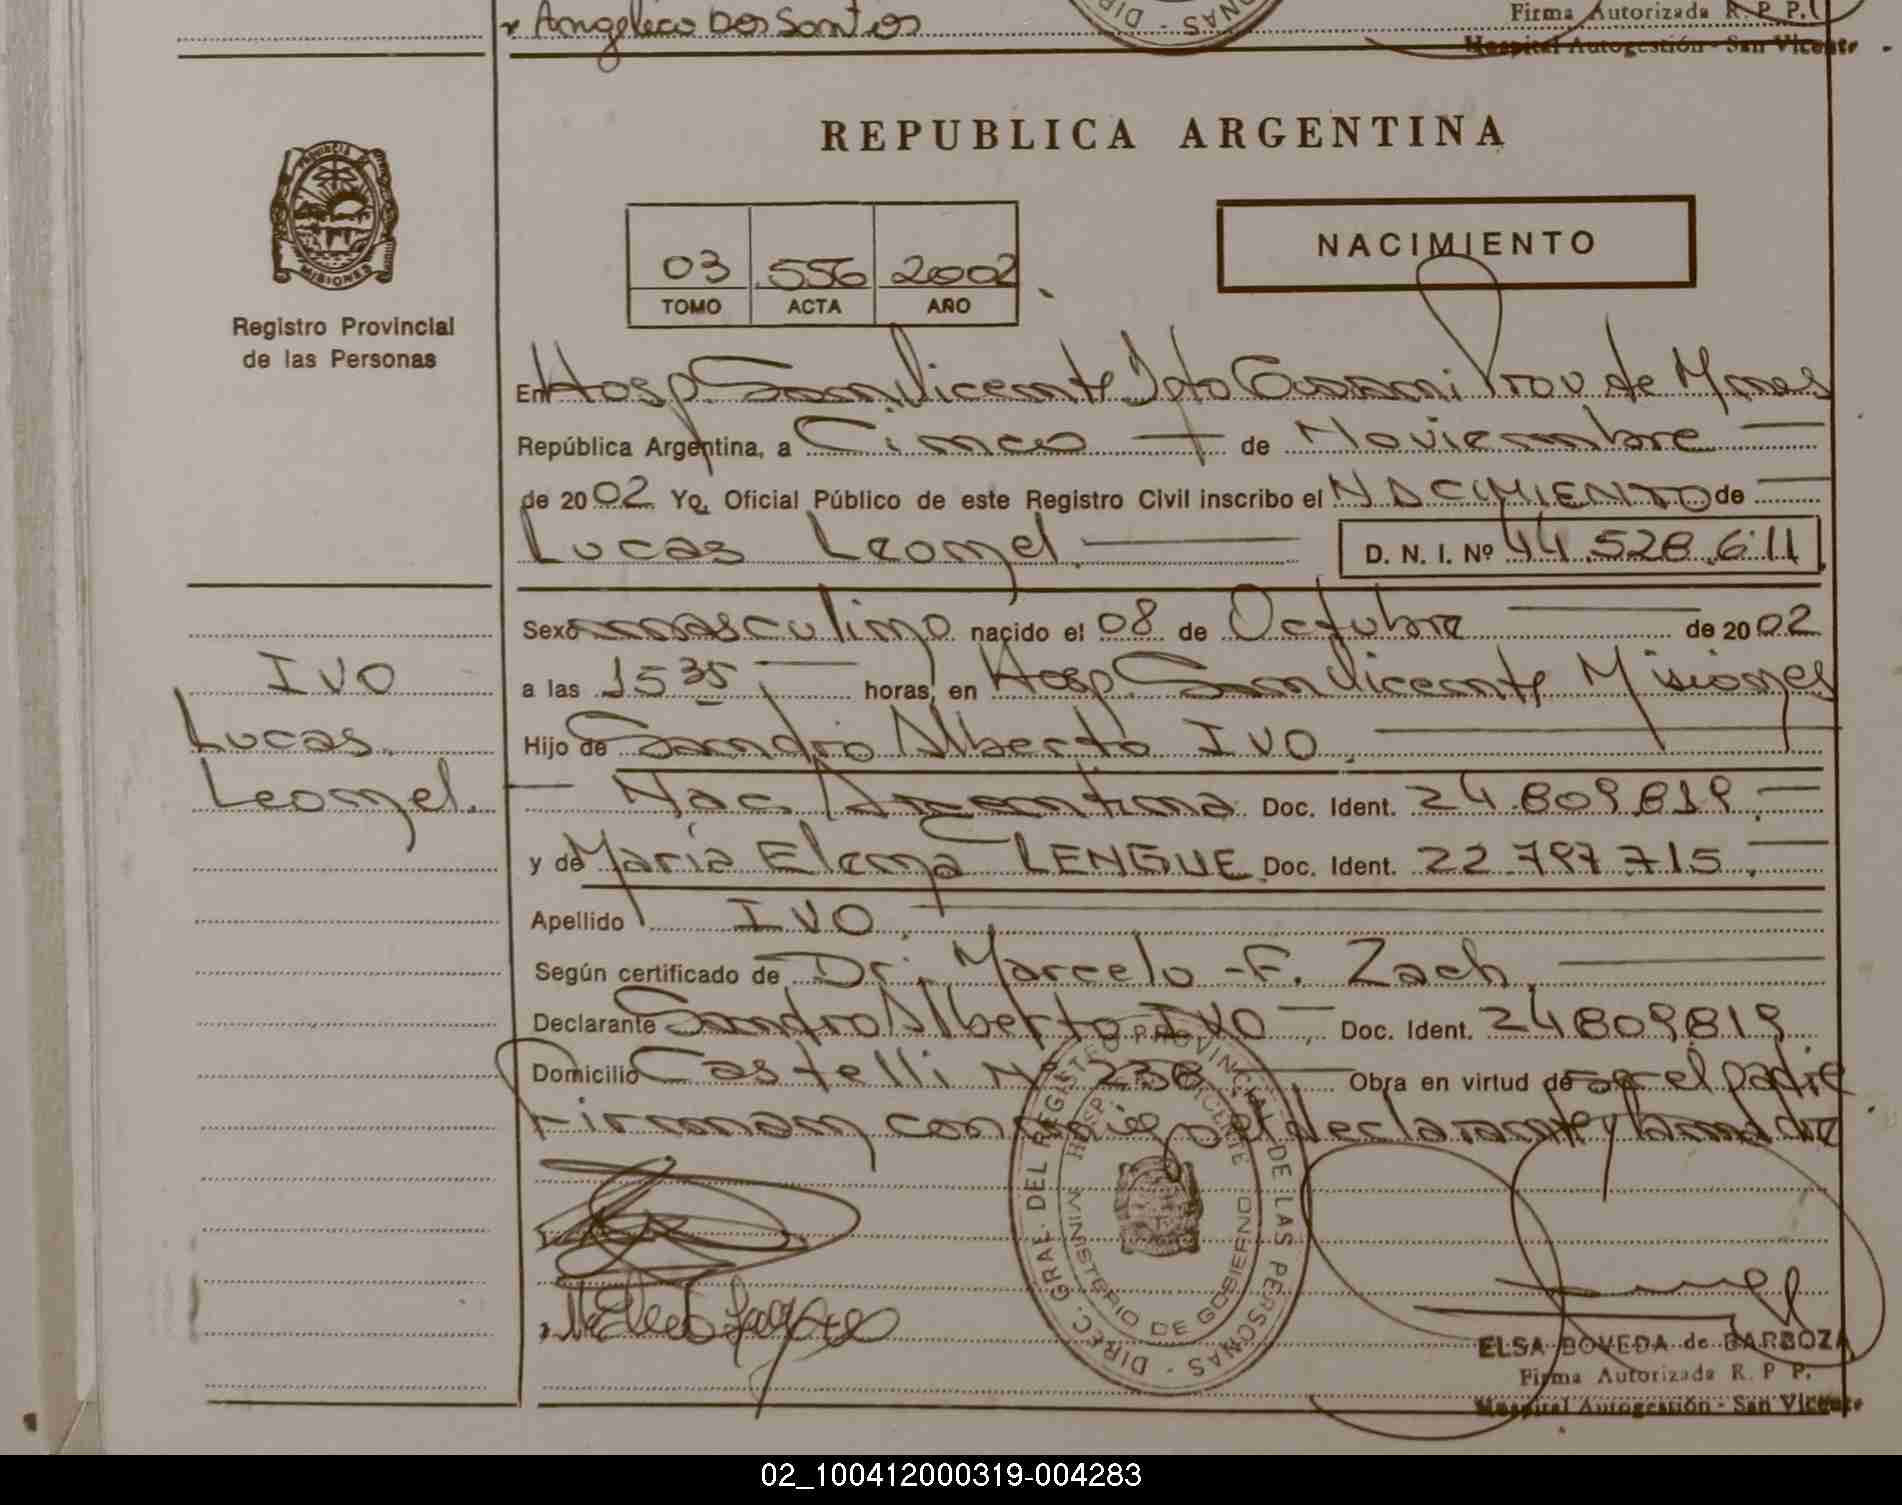 Angelica Dos Santos
Firma Autorizada R. P. P.
Hospital Autogestión - San Vicente
REPUBLICA ARGENTINA
NACIMIENTO
03 556 2002
TOMO ACTA AÑO
PROVINCIA DE
MISIONES
Registro Provincial
de las Personas
En Hosp. San Vicente Dpto Guarani Prov. de Mnes
República Argentina, a Cinco de Noviembre
de 2002 Yo, Oficial Público de este Registro Civil inscribo el NACIMIENTO de
Lucas Leonel. D. N. I. Nº 44.528.611
Sexo masculino nacido el 08 de Octubre de 2002
a las 15 35 horas, en Hosp. San Vicente Misiones
Hijo de Sandro Alberto IVO.
Nac. Argentina Doc. Ident. 24.809.819.
y de María Elena LENGUE Doc. Ident. 22.797.715.
Apellido IVO.
Según certificado de Dr. Marcelo -F. Zach.
Declarante Sandro Alberto IVO Doc. Ident. 24809819
Domicilio Castelli Nº 238 Obra en virtud de ser el padre
Firman conmigo el declarante y la madre
IVO
Lucas.
Leonel.
DIREC. GRAL. DEL REGISTRO PROVINCIAL DE LAS PERSONAS
MINISTERIO DE GOBIERNO
HOSP. VICENTE
ELSA BOVEDA de BARBOZA
Firma Autorizada R. P. P.
Hospital Autogestión - San Vicente
02_100412000319-004283